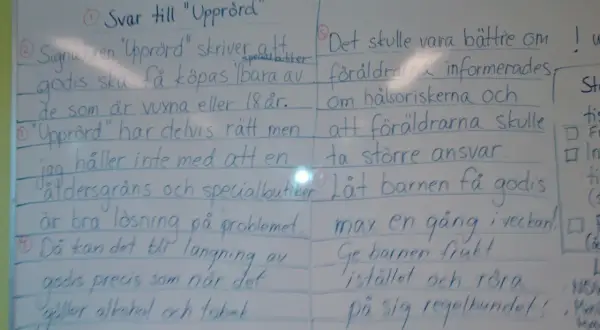 ① Svar till "Upprörd"
② Signaturen "Upprörd" skriver att
godis ska få köpas bara av
specialbutiker
de som är vuxna eller 18 år.
③ "Upprörd" har delvis rätt men
jag håller inte med att en
åldersgräns och specialbutiker
är bra lösning på problemet
④ Då kan det bli langning av
godis precis som när det
gäller alkohol och tobak
⑤ Det skulle vara bättre om
föräldrarna informerades
om hälsoriskerna och
att föräldrarna skulle
ta större ansvar
Låt barnen få godis
max en gång i veckan!
Ge barnen frukt
istället och röra
på sig regelbundet!